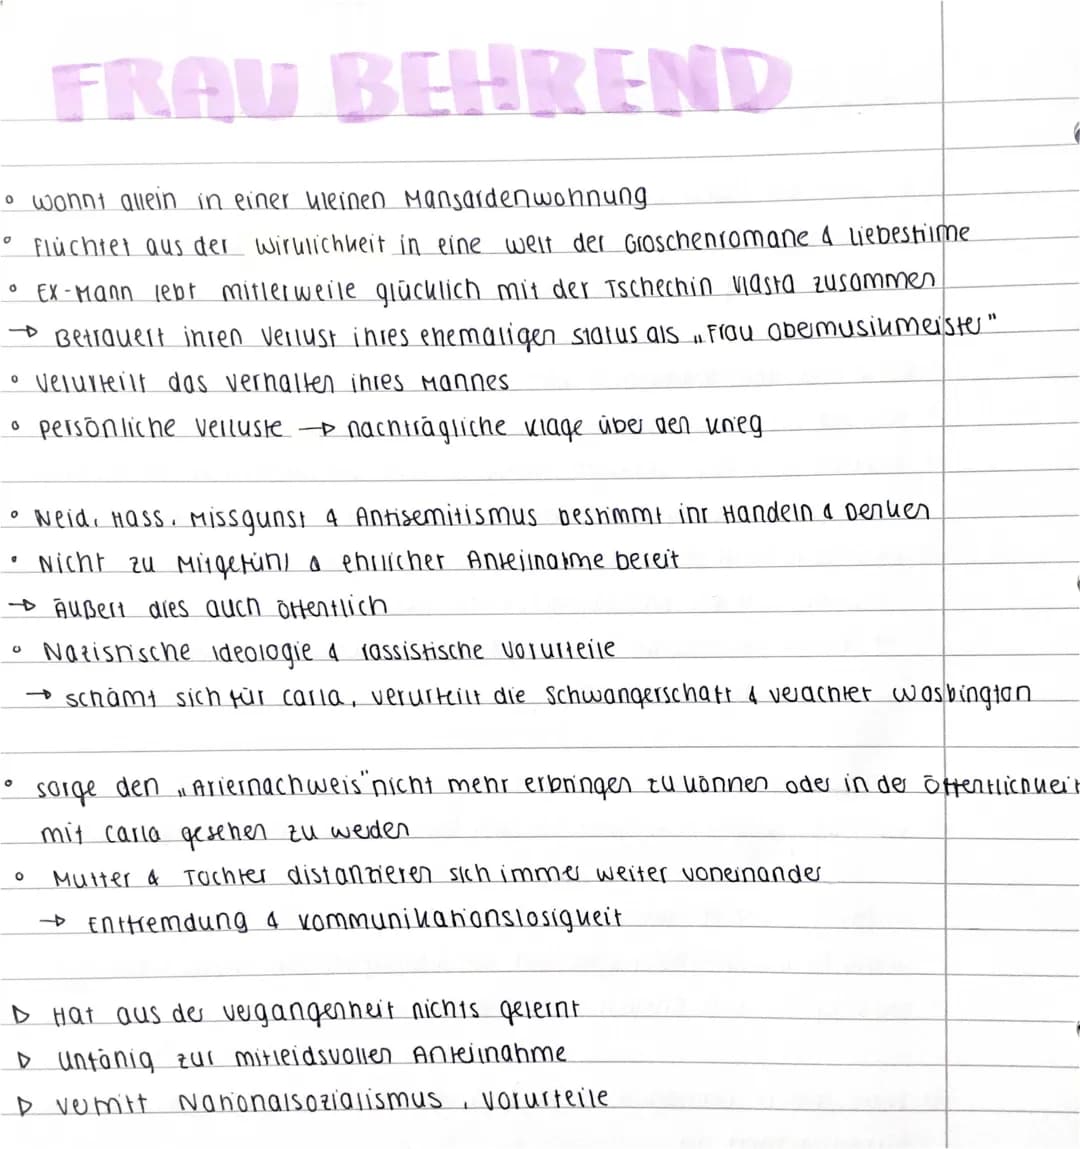 FRAU BEHREND
° wohnt allein in einer kleinen Mansardenwohnung
° Flüchtet aus der Wirklichkeit in eine Welt der Groschenromane & Liebesfilme
° Ex-Mann lebt mitlerweile glücklich mit der Tschechin Vlasta zusammen
→ Betrauert ihren Verlust ihres ehemaligen Status als „Frau Obermusikmeister"
° Verurteilt das Verhalten ihres Mannes
° persönliche Verluste → nachträgliche Klage über den Krieg
° Neid, Hass, Missgunst & Antisemitismus bestimmt ihr Handeln & Denken
° Nicht zu Mitgefühl & ehrlicher Anteilnahme bereit
→ Äußert dies auch öffentlich
° Nazisische Ideologie & rassistische Vorurteile
→ schämt sich für Carla, verurteilt die Schwangerschaft & verachtet Washington
° sorge den „Ariernachweis" nicht mehr erbringen zu können oder in der Öffentlichkeit
mit Carla gesehen zu werden
° Mutter & Tochter distanzieren sich immer weiter voneinander
→ Entfremdung & Kommunikationslosigkeit
▷ Hat aus der Vergangenheit nichts gelernt
▷ Unfähig zur mitleidsvollen Anteilnahme
▷ Nationalsozialismus, Vorurteile